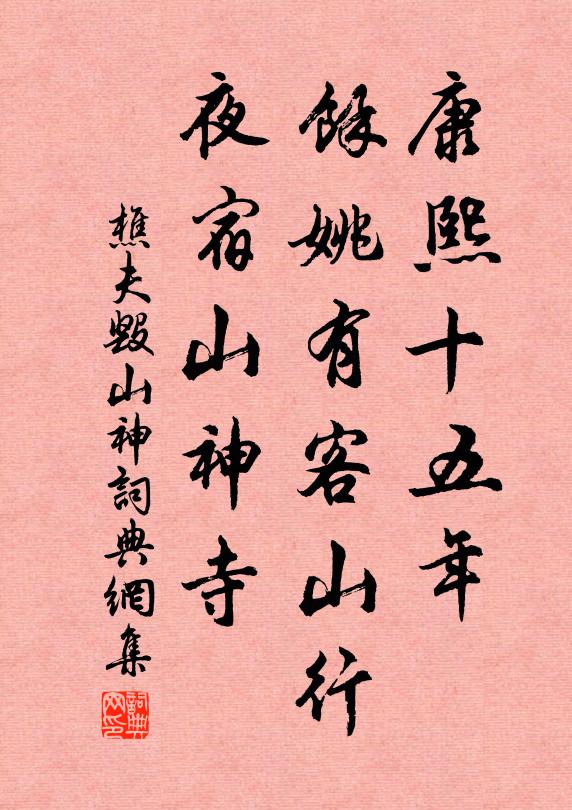 康熙十五年
餘姚有客山行
夜宿山神寺
樵夫毀山神詞典網集
詞典网印